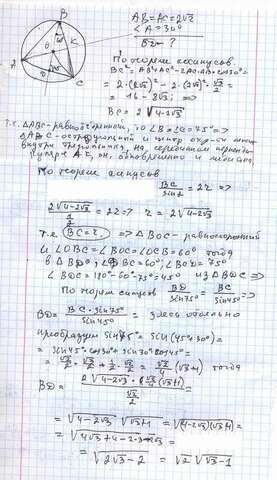 B
A
C
K
O
D
AB = AC = 2√2
∠A = 30°
BD - ?
По теореме косинусов.
BC² = AB² + AC² - 2AB·AC·cos30° =
= 2·(2√2)² - 2·(2√2)²·√3/2 =
= 16 - 8√3; =>
BC = 2√(4-2√3)
т.к. △ABC - равнобедренный, то ∠B = ∠C = 75° =>
△ABC - остроугольный и центр окр-ти лежит
внутри треугольника, на серединном перпен-
дикуляре AC, он, одновременно и медиана.
По теореме синусов
BC/sinA = 2r =>
2√(4-2√3) / (1/2) = 2r => r = 2√(4-2√3)
т.е. BC = r => △BOC - равносторонний
и ∠OBC = ∠BOC = ∠OCB = 60° тогда
в △BDC; ∠DBC = 60°; ∠BCD = 75°
∠BDC = 180° - 60° - 75° = 45° из △BDC =>
По теореме синусов BD/sin75° = BC/sin45° =>
BD = BC·sin75°/sin45° = здесь отдельно
преобразуем sin75° = sin(45°+30°) =
= sin45°·cos30° + sin30°·cos45° =
= √2/2·√3/2 + 1/2·√2/2 = √2/4(√3+1) тогда
BD = 2√(4-2√3)·√2/4(√3+1) / (√2/2) =
= √(4-2√3)·√(√3+1) = √((4-2√3)(√3+1)) =
= √(4√3+4-2·3-2√3) =
= √(2√3-2) = √2 √(√3-1)